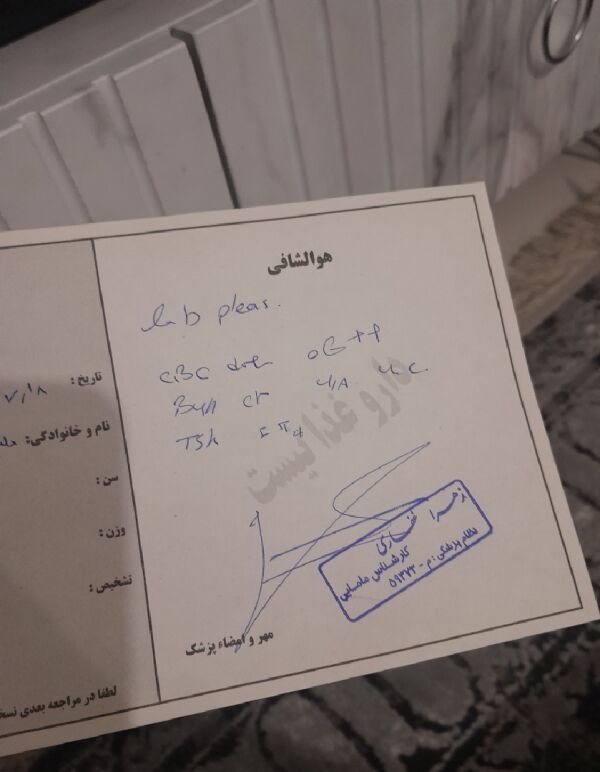 هوالشافی
lab pleas.
CBC diff OGTT
Bun Cr U/A U/C
TSH FT4
دارو غذا نیست
تاریخ: ۷/۱۸
نام و خانوادگی:
سن:
وزن:
تشخیص:
زهرا غفاری
کارشناس مامایی
نظام پزشکی: م - ۵۹۳۷۳
مهر و امضاء پزشک
لطفا در مراجعه بعدی